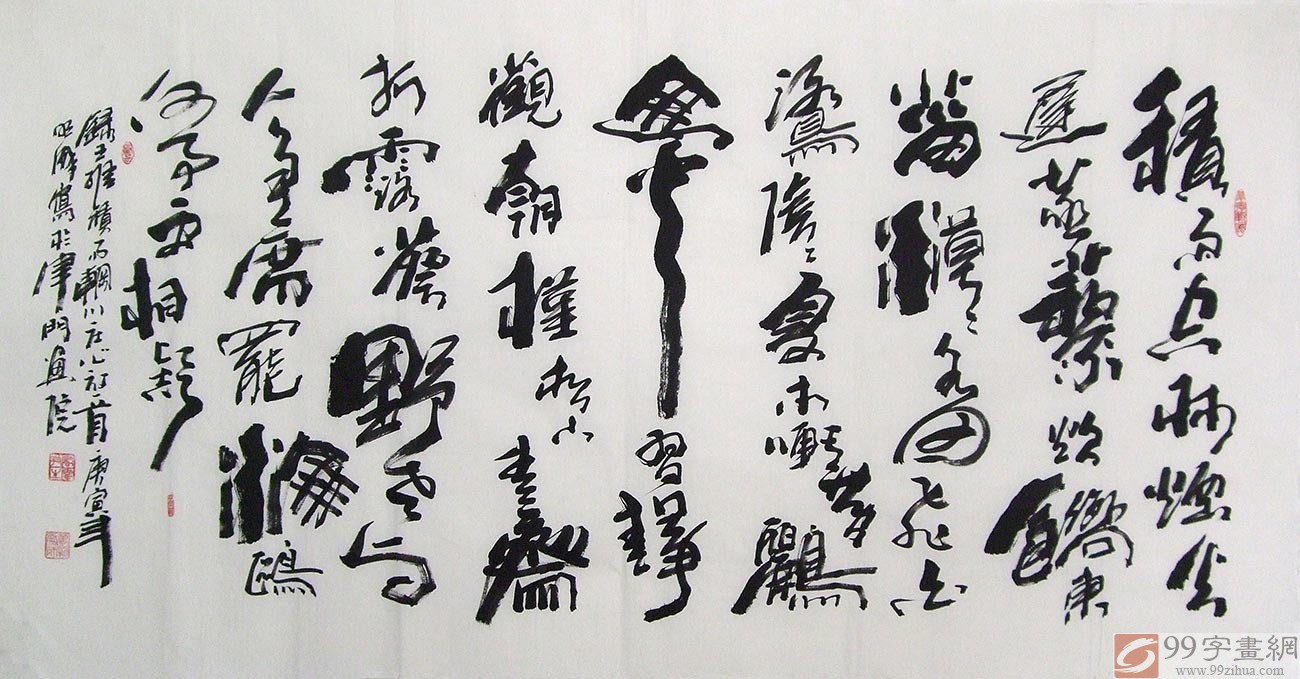 積雨空林煙火
遲蒸藜炊餉東
菑漠漠水田飛白
鷺陰陰夏木囀黃鸝
中習靜
觀朝槿松下清齋
折露葵野老與
人爭席罷海鷗
何事更相疑
錄王維積雨輞川庄一首庚寅年
寫於津門畫院
99字畫網
www.99zihua.com